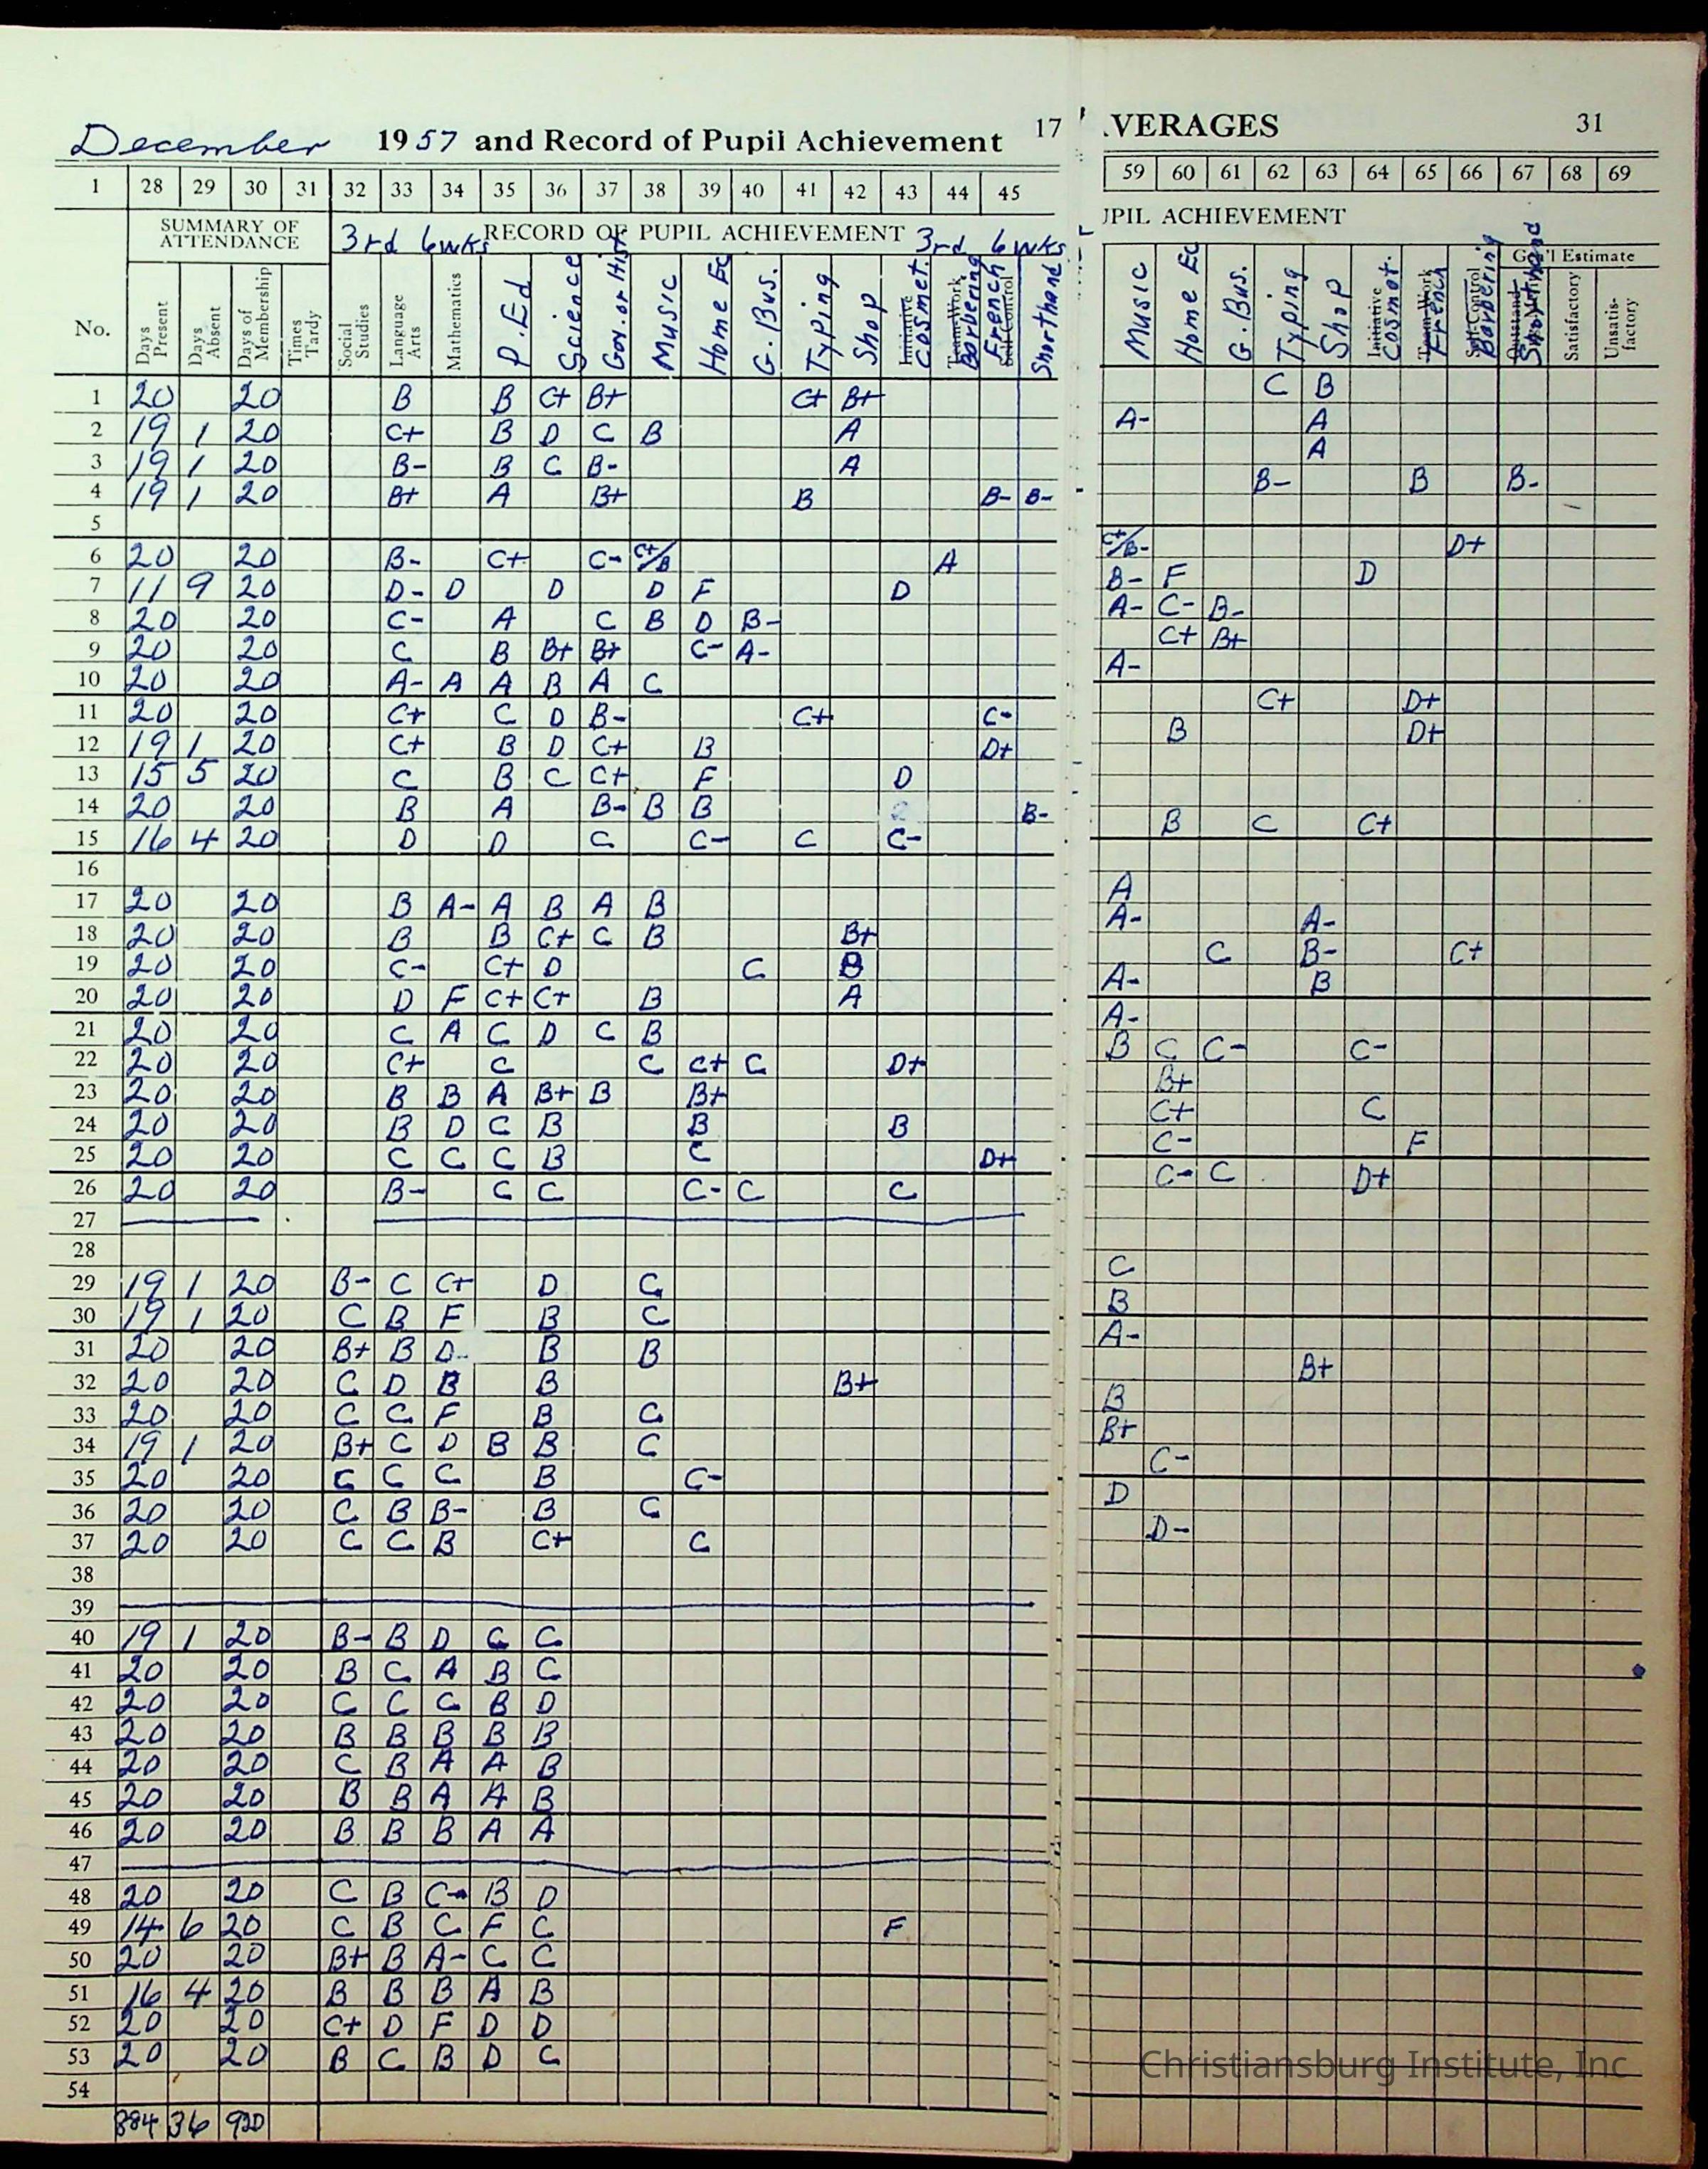 December 1957 and Record of Pupil Achievement 17
1 28 29 30 31 32 33 34 35 36 37 38 39 40 41 42 43 44 45
SUMMARY OF ATTENDANCE 3rd 6wks RECORD OF PUPIL ACHIEVEMENT 3rd 6wks
No. Days Present Days Absent Days of Membership Times Tardy Social Studies Language Arts Mathematics P.Ed Science Gov. or Hist Music Home Ec G. Bus. Typing Shop Initiative Cosmet. Team-Work Barbering French Self-Control Shorthand
1 20 20 B B C+ B+ C+ B+
2 19 1 20 C+ B D C B A
3 19 1 20 B- B C B- A
4 19 1 20 B+ A B+ B B- B-
5
6 20 20 B- C+ C- C+/B A
7 11 9 20 D- D D D F D
8 20 20 C- A C B D B-
9 20 20 C B B+ B+ C- A-
10 20 20 A- A A B A C
11 20 20 C+ C D B- C+ C-
12 19 1 20 C+ B D C+ B D+
13 15 5 20 C B C C+ F D
14 20 20 B A B- B B B-
15 16 4 20 D D C C- C C-
16
17 20 20 B A- A B A B
18 20 20 B B C+ C B B+
19 20 20 C- C+ D C B
20 20 20 D F C+ C+ B A
21 20 20 C A C D C B
22 20 20 C+ C C C+ C D+
23 20 20 B B A B+ B B+
24 20 20 B D C B B B
25 20 20 C C C B C D+
26 20 20 B- C C C- C C
27
28
29 19 1 20 B- C C+ D C
30 19 1 20 C B F B C
31 20 20 B+ B D- B B
32 20 20 C D B B B+
33 20 20 C C F B C
34 19 1 20 B+ C D B B C
35 20 20 C C C B C-
36 20 20 C B B- B C
37 20 20 C C B C+ C
38
39
40 19 1 20 B- B D C C
41 20 20 B C A B C
42 20 20 C C C B D
43 20 20 B B B B B
44 20 20 C B A A B
45 20 20 B B A A B
46 20 20 B B B A A
47
48 20 20 C B C- B D
49 14 6 20 C B C F C F
50 20 20 B+ B A- C C
51 16 4 20 B B B A B
52 20 20 C+ D F D D
53 20 20 B C B D C
54
884 36 920
AVERAGES 31
59 60 61 62 63 64 65 66 67 68 69
UPIL ACHIEVEMENT
Gen'l Estimate
Music Home Ec G. Bus. Typing Shop Initiative Cosmot. Team-Work French Self-Control Barbering Shorthand Satisfactory Unsatisfactory
C B
A- A
A
B- B B-
C+/B- D+
B- F D
A- C- B-
C+ B+
A-
C+ D+
B D+
B C C+
A
A- A-
C B- C+
A- B
A-
B C C- C-
B+
C+ C
C- F
C- C D+
C
B
A-
B+
B
B+
C-
D
D-
Christiansburg Institute, Inc